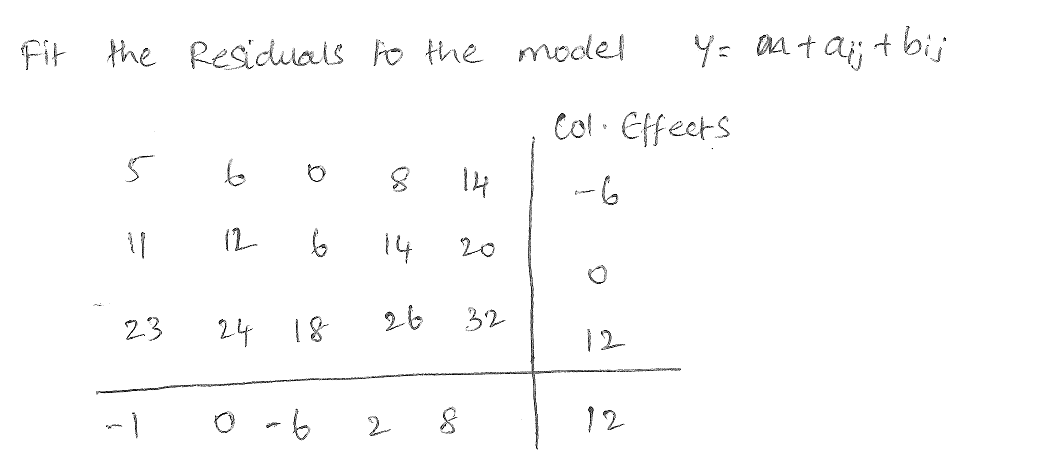 Fit the Residuals to the model y = m + aij + bij
Col. Effects
5 6 0 8 14 -6
11 12 6 14 20 0
23 24 18 26 32 12
-1 0 -6 2 8 12